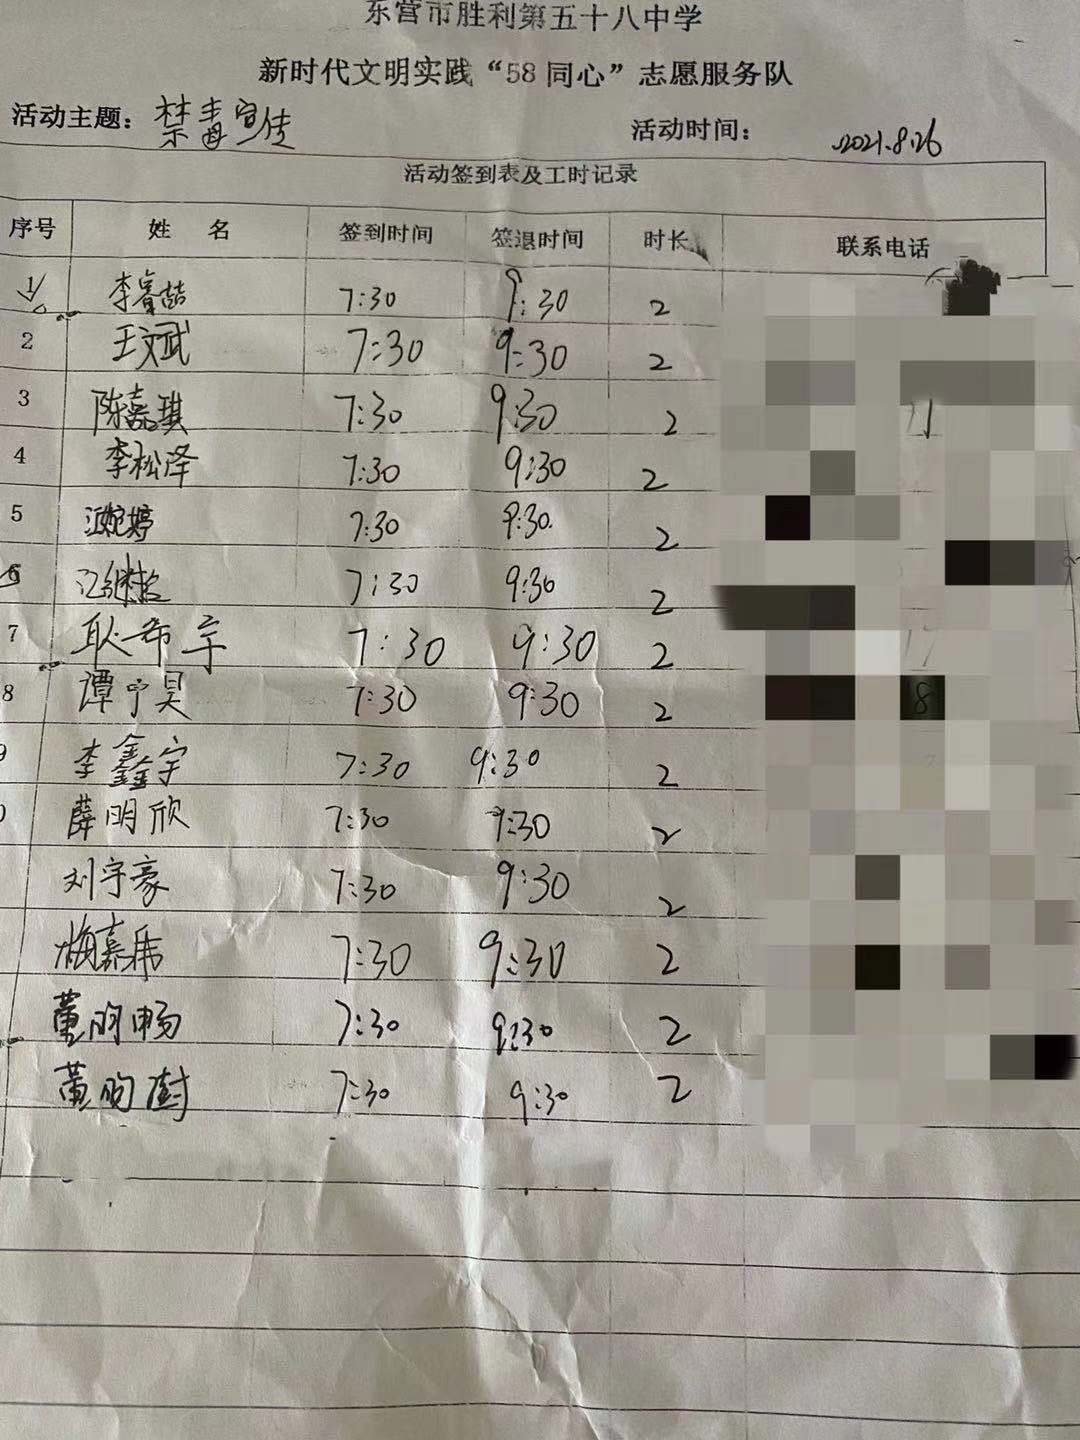 东营市胜利第五十八中学
新时代文明实践“58同心”志愿服务队
活动主题： 禁毒宣传 活动时间： 2021.8.26
活动签到表及工时记录
序号 姓 名 签到时间 签退时间 时长 联系电话
1 李睿喆 7:30 9:30 2
2 王文武 7:30 9:30 2
3 陈嘉琪 7:30 9:30 2
4 李松泽 7:30 9:30 2
5 7:30 9:30 2
6 7:30 9:30 2
7 耿希宇 7:30 9:30 2
8 谭宁昊 7:30 9:30 2
9 李鑫宇 7:30 9:30 2
薛明欣 7:30 9:30 2
刘宇豪 7:30 9:30 2
梅嘉伟 7:30 9:30 2
董明畅 7:30 9:30 2
7:30 9:30 2